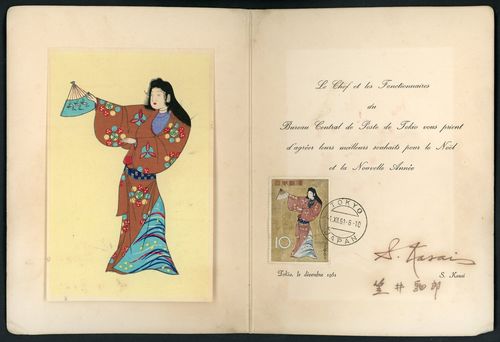 Le Chef et les Fonctionnaires
du
Bureau Central de Poste de Tokio vous prient
d'agréer leurs meilleurs souhaits pour le Noël
et la Nouvelle Année
日本郵便
10
TOKYO
1.XII.61.8-10
JAPAN
Tokio, le décembre 1961
S. Kasai
S. Kasai
笠井